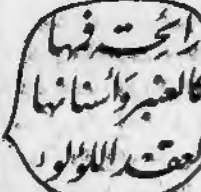 رائحة فمها
كالعنبر وأسنانها
كعقد اللؤلؤ